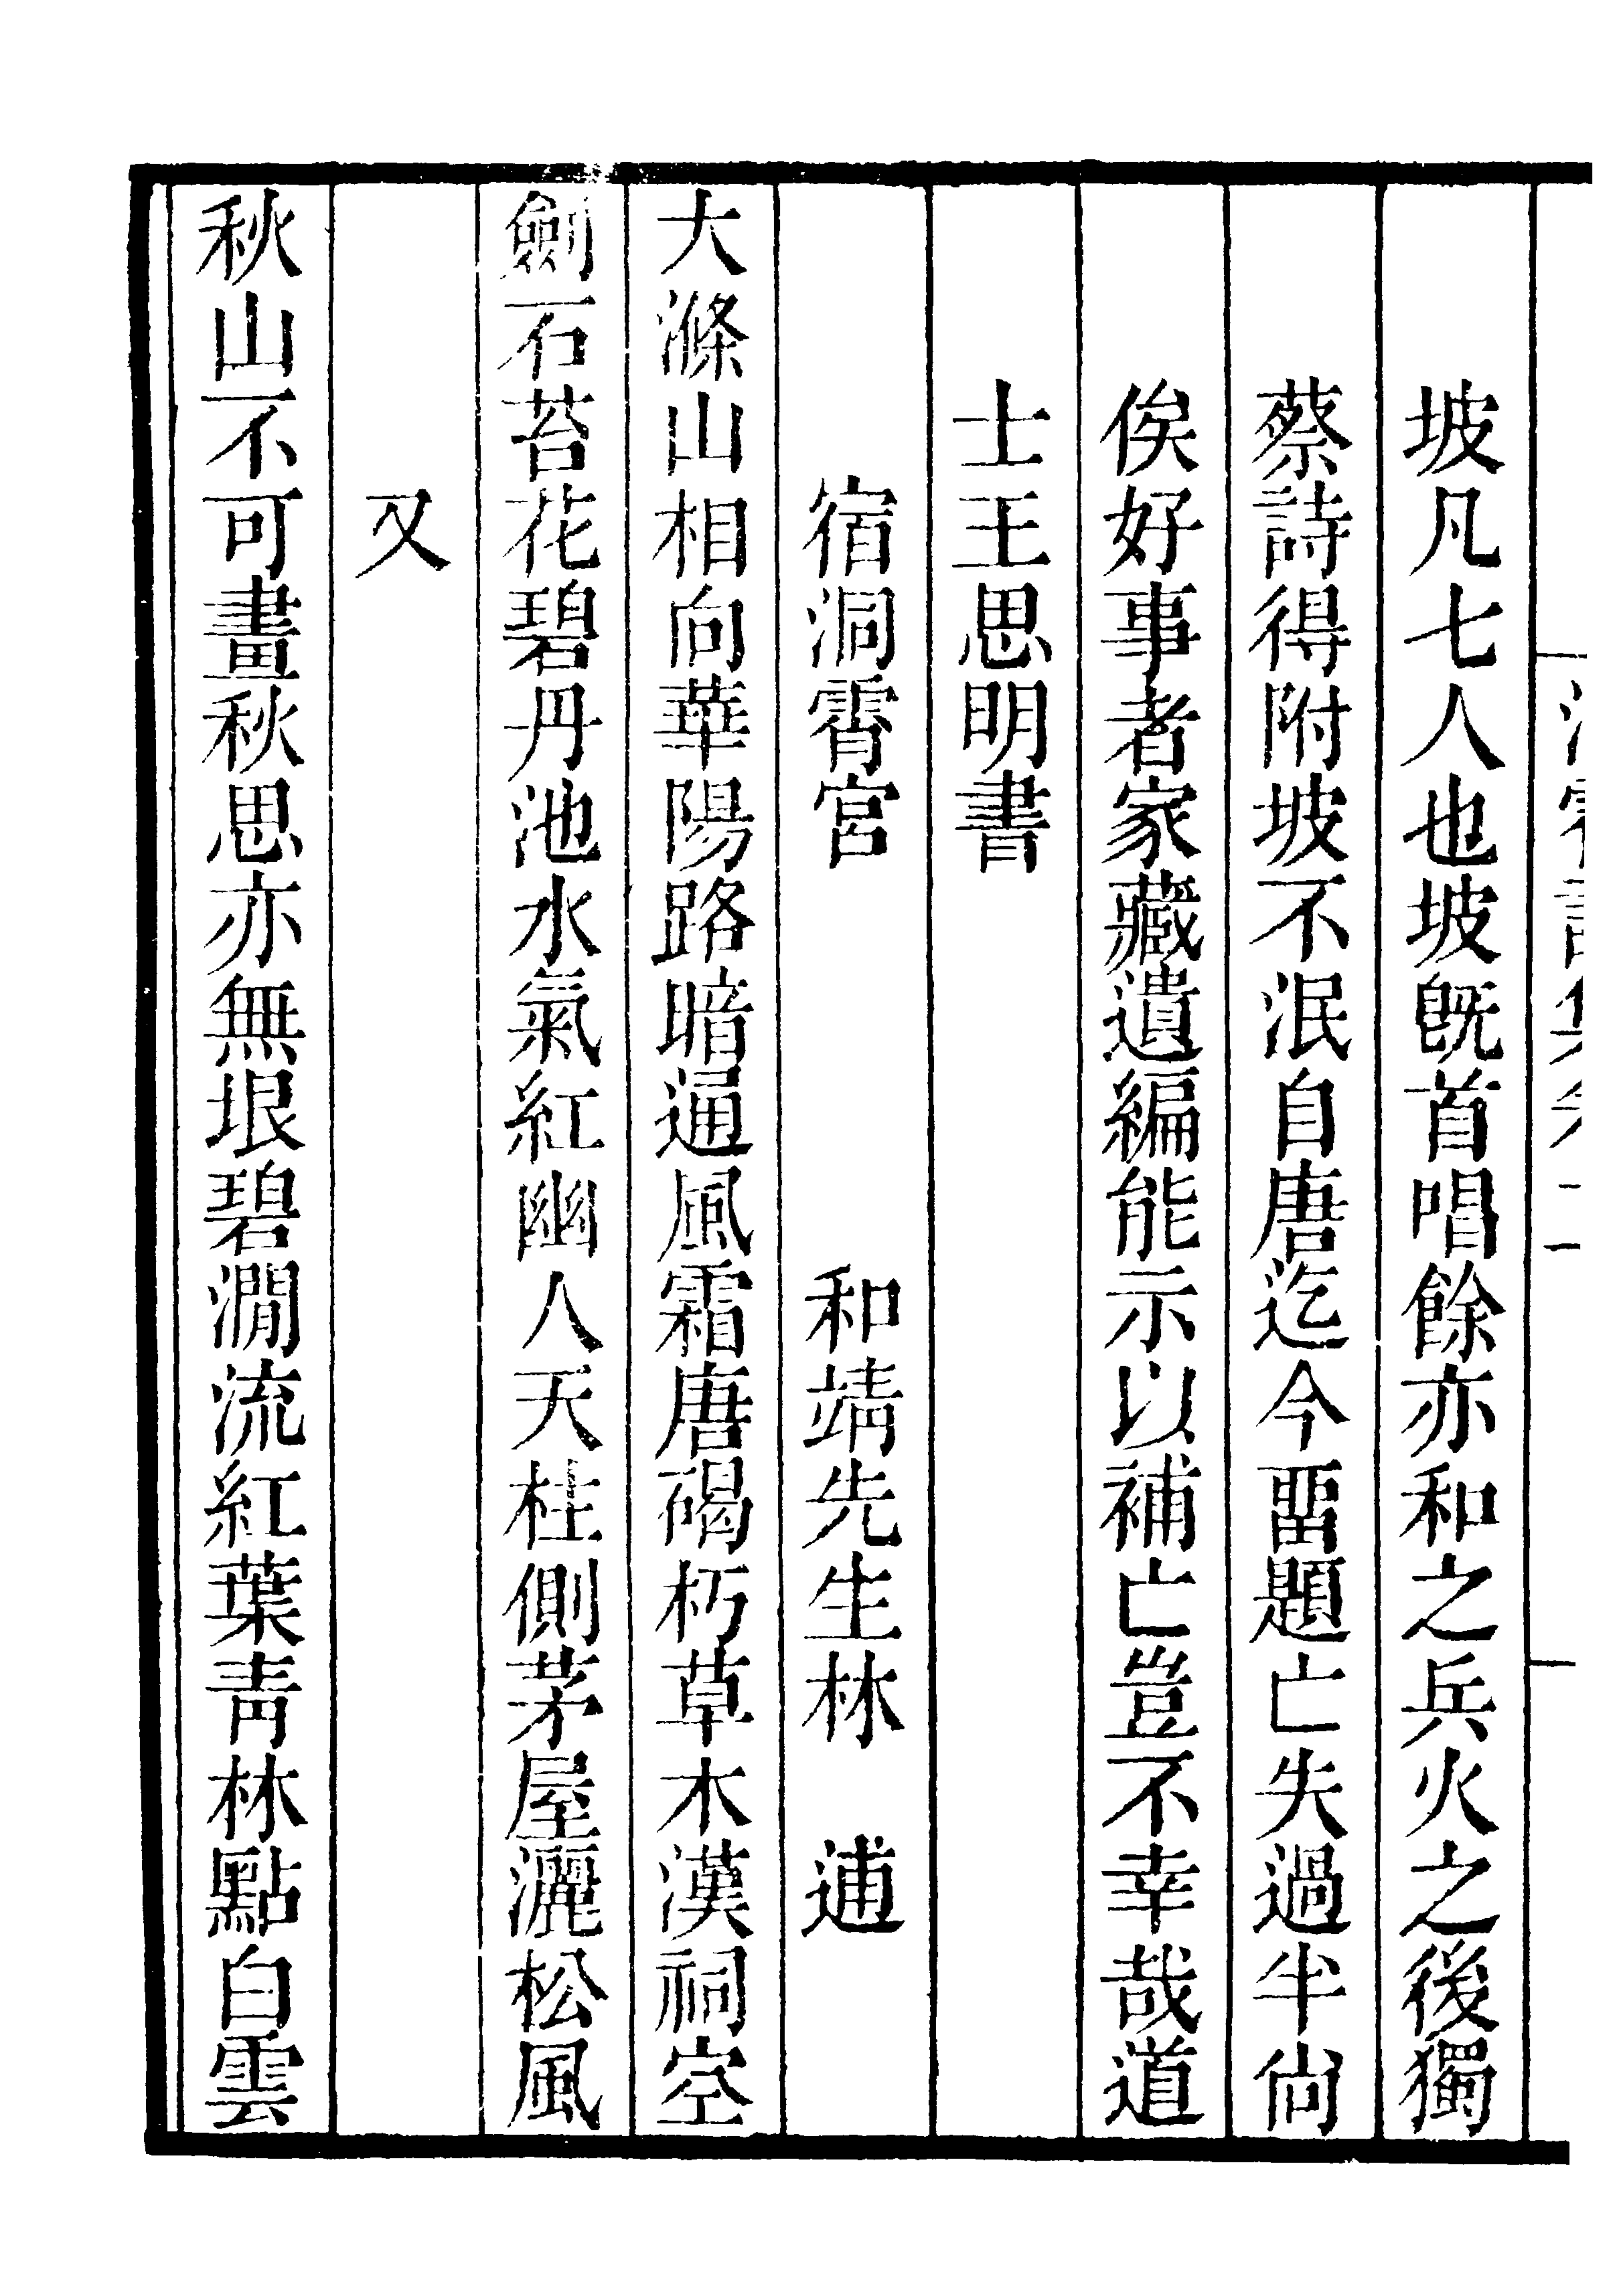 坡凡七人也坡旣首唱餘亦和之兵火之後獨
蔡詩得附坡不泯自唐迄今畱題亡失過半尙
俟好事者家藏遺編能示以補亡豈不幸哉道
士王思明書
宿洞霄宮　和靖先生林　逋
大滌山相向華陽路暗逼風霜唐碣朽草木漢祠空
劍石苔花碧丹池水氣紅幽人天柱側茅屋灑松風
又
秋山不可畫秋思亦無垠碧澗流紅葉青林點白雲